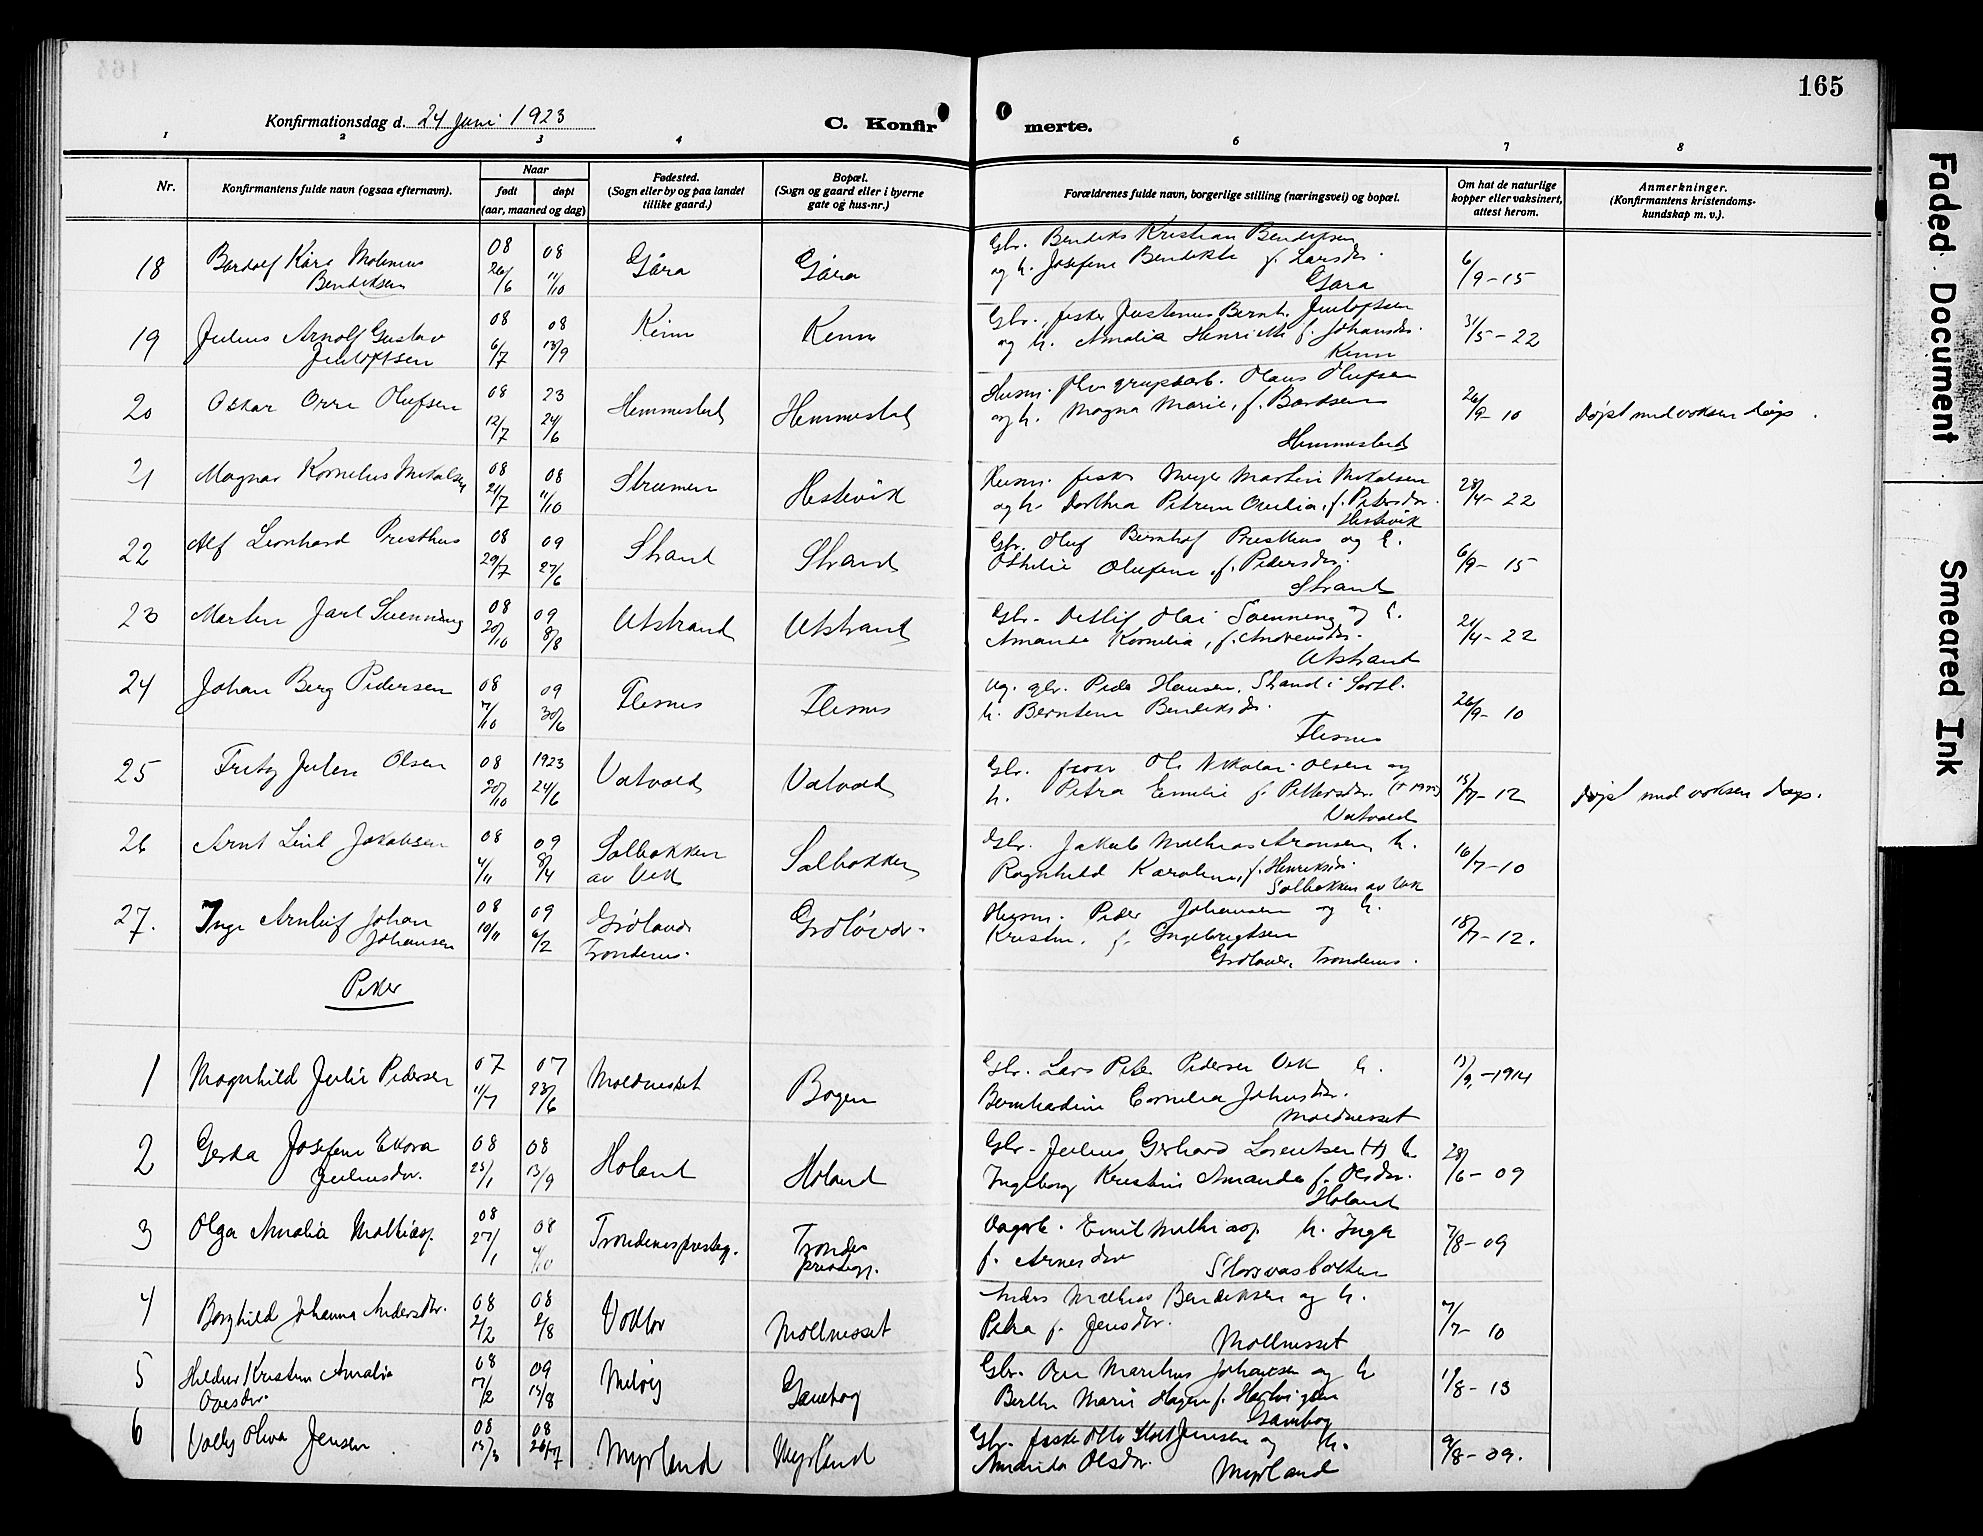 165
Konfirmationsdag d. 24 Juni 1923
C. Konfirmerte.
1 2 3 4 6 7 8
Nr.
Konfirmantens fulde navn (ogsaa efternavn).
Naar
født
døpt
(aar, maaned og dag)
Fødested.
(Sogn eller by og paa landet
tillike gaard.)
Bopæl.
(Sogn og gaard eller i byerne
gate og hus-nr.)
Forældrenes fulde navn, borgerlige stilling (næringsvei) og bopæl.
Om hat de naturlige
kopper eller vaksinert,
attest herom.
Anmerkninger.
(Konfirmantens kristendoms-
kundskap m. v.).
18 Bardolf Kåre Molenius Bendiksen 08 26/6 08 11/10 Gåra Gåra
Gbr. Bendiks Kristian Bendiksen
og h. Josefine Bendikte f. Larsdr.
Gåra
6/9-15
19 Julius Arnolf Gustav Jentoftsen 08 6/7 08 13/9 Keinn Keinn
Gbr., fisker Justinus Bernh. Jentoftsen
og h. Amalia Henriette f. Johansdr.
Keinn
31/5-22
20 Oskar Orre Olufsen 08 12/7 23 24/6 Hemmestad Hemmestad
Husm. Olaus Olufsen
og h. Magna Marie, f. Bardsen
Hemmestad
26/9-10
Døpt med voksen dåp.
21 Magnar Kornelius Mikalsen 08 21/7 08 11/10 Straumen Hestevik
Husm. fisker Meyer Martin Mikalsen
og h. Dorthea Petrine f. Petersdr.
Hestevik
28/4-22
22 Alf Leonhard Presthus 08 29/7 09 27/6 Strand Strand
Gbr. Oluf Bernhof Presthus og h.
Othelie Olufine, f. Pedersdr.
Strand
6/9-15
23 Martin Jarl Svenning 08 20/10 09 8/8 Utstrand Utstrand
Gbr. Detlif Olai Svenning og h.
Amanda Kornelia, f. Andreasdr.
Utstrand
21/4-22
24 Johan Berg Pedersen 08 7/10 09 30/6 Flesnes Flesnes
Ug. gbr. Peder Hansen, Strand i Sortl.
h. Berntine Bendiksdr.
Flesnes
26/9-10
25 Fritz Julen Olsen 08 20/10 1923 24/6 Vatvold Vatvold
Gbr. Ole Nikolai Olsen og
h. Petra Emilie f. Pettersdr.
Vatvold
15/7-12
Døpt med voksen dåp.
26 Arnt Leul Jakobsen 08 4/11 09 8/4 Solbakken av Vik Solbakken
Gbr. Jakob Mathias Aronsen h.
Ragnhild Karoline, f. Henriksdr.
Solbakken av Vik
16/7-10
27. Inge Arnleif Johan Johansen 08 10/11 09 6/2 Grøtavær Trondenes. Grøtavær.
Husm. Peder Johansen og h.
Kristine, f. Ingebrigtsen
Grøtavær, Trondenes.
18/7-12.
Piker
1 Magnhild Julie Pedersen 07 11/7 07 23/6 Moldnesset Bogen
Gbr. Lars Peter Pedersen Vik h.
Bernhardine Cornelia Johnsdr.
Moldnesset
13/9-1914
2 Gerda Josefine Ekora Juliusdr. 08 25/1 08 13/9 Holand Holand
Gbr. Julius Gerhard Lorentsen og h.
Ingeborg Kristine Amanda f. Olsdr.
Holand
28/6-09
3 Olga Amalia Mathiasp. 08 27/1 08 4/10 Trondenes prestegj. Trondes prestegj.
Dagarb. Emil Mathiasp. h. Inga
f. Arnesdr
Storvasbotten
7/8-09
4 Borghild Johanna Andersdr. 08 2/2 08 2/8 Mollnesset
Anders Mathias Bendiksen og h.
Petra f. Jensdr.
Mollnesset
7/7-10
5 Hildur Kristine Amalia Ovesdr. 08 17/2 09 15/8 Meløy Gausbog
Gbr. Ove Marthus Johansen og h
Berthe Marie Hagen f. Hartvigsen
Gausbog
1/8-13
6 Vally Oliva Jensen 08 13/3 08 26/7 Myrland Myrland
Gbr. fisker Otto Jensen og h.
Amanda Olsdr.
Myrland
9/8-09.
Faded Document
Smeared Ink